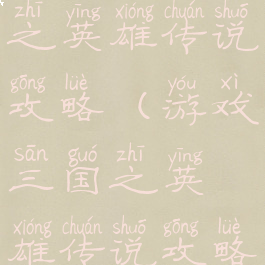 zhī yīng xióng chuán shuō
之英雄传说
gōng lüè yóu xì
攻略（游戏
sān guó zhī yīng
三国之英
xióng chuán shuō gōng lüè
雄传说攻略